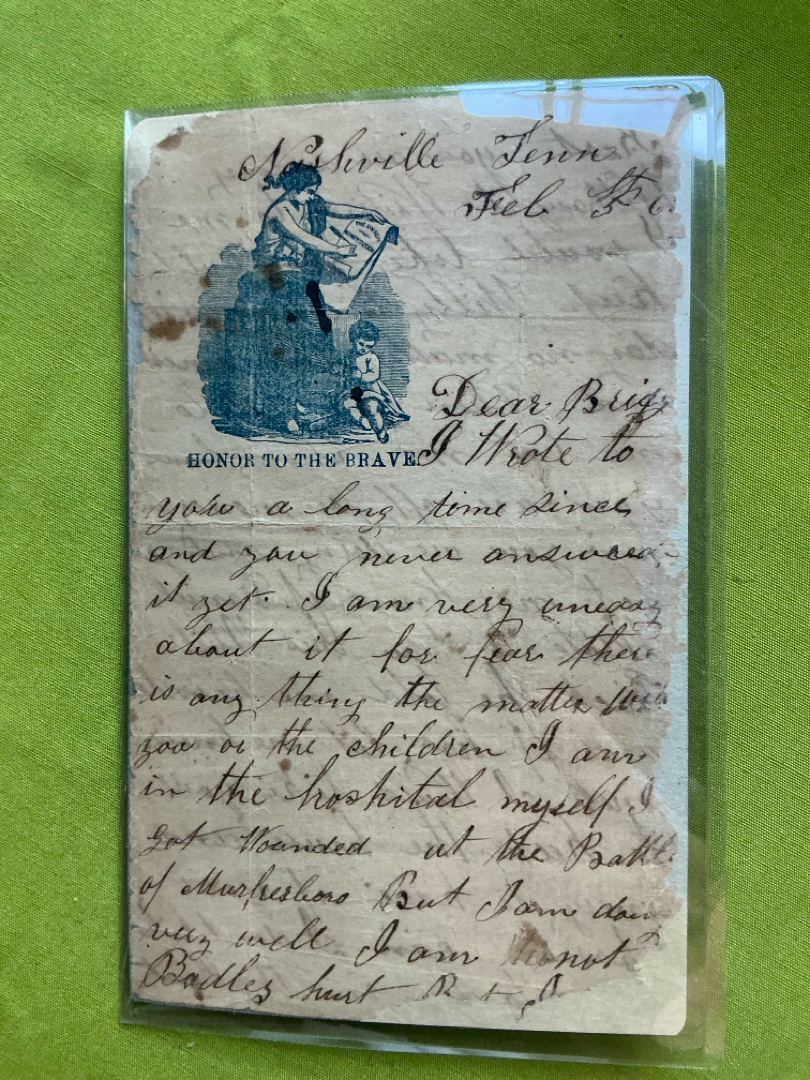 Nashville Tenn
Feb 5th 6
THE UNION
CONSTITUTION
Dear Brig
HONOR TO THE BRAVE.
I Wrote to
you a long time since
and you never answered
it yet. I am very uneasy
about it for fear there
is any thing the matter With
you or the children I am
in the hospital myself I
got Wounded at the Battl
of Murfresboro But I am doing
very well I am not
Badley hurt